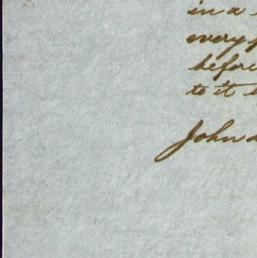 in a
every
before
to it
John